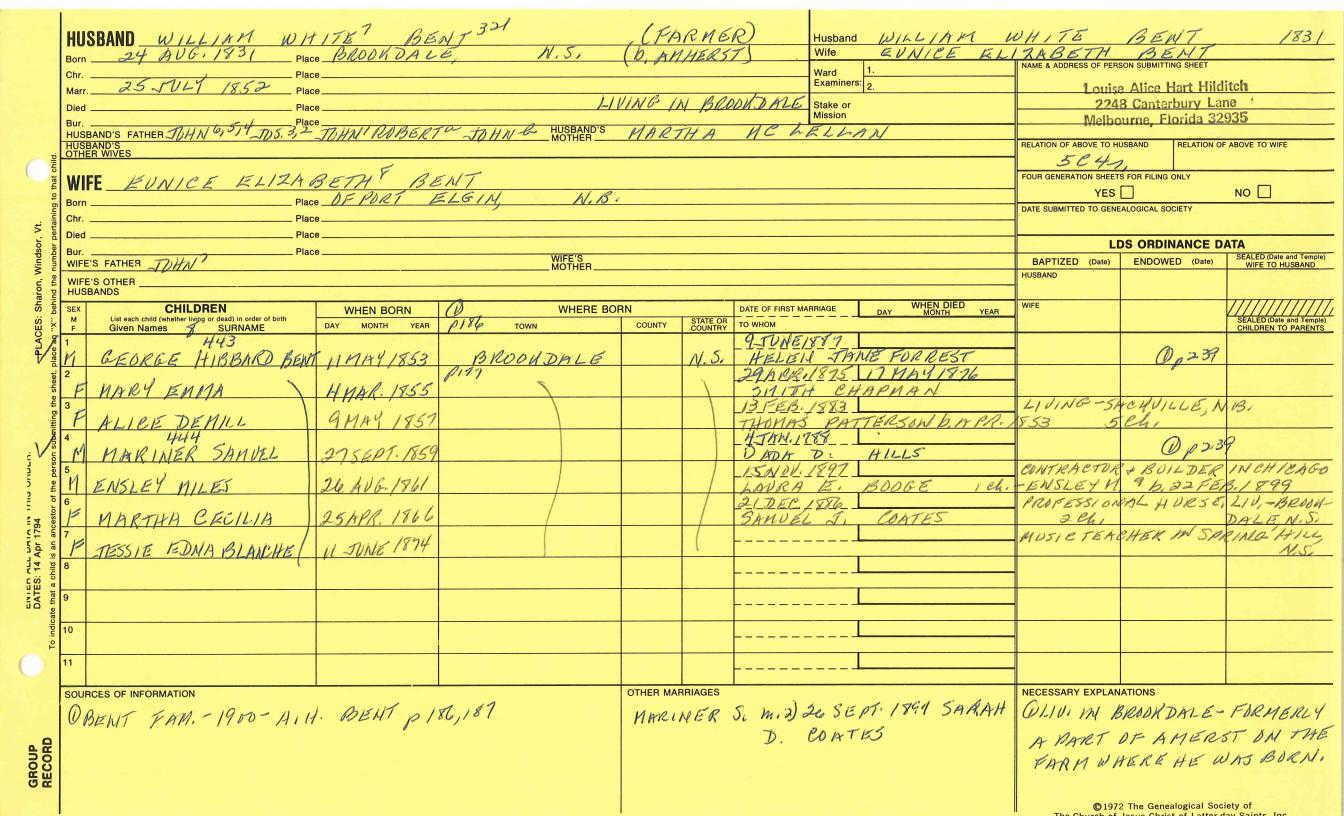 HUSBAND WILLIAM WHITE 7 BENT 321 (FARMER)
Born 24 AUG. 1831 Place BROOKDALE, N.S. (b. AMHERST)
Chr. Place
Marr. 25 JULY 1852 Place
Died Place LIVING IN BROOKDALE
Bur. Place
HUSBAND'S FATHER JOHN 6,5,4 JOS. 3,2 JOHN 1 ROBERT a JOHN b HUSBAND'S MOTHER MARTHA MC LELLAN
HUSBAND'S OTHER WIVES
Husband WILLIAM WHITE BENT 1831
Wife EUNICE ELIZABETH BENT
Ward Examiners: 1.
2.
Stake or Mission
NAME & ADDRESS OF PERSON SUBMITTING SHEET
Louise Alice Hart Hilditch
2248 Canterbury Lane
Melbourne, Florida 32935
RELATION OF ABOVE TO HUSBAND RELATION OF ABOVE TO WIFE
5C4r
FOUR GENERATION SHEETS FOR FILING ONLY
YES NO
DATE SUBMITTED TO GENEALOGICAL SOCIETY
WIFE EUNICE ELIZABETH 8 BENT
Born Place OF PORT ELGIN, N.B.
Chr. Place
Died Place
Bur. Place
WIFE'S FATHER JOHN 7 WIFE'S MOTHER
WIFE'S OTHER HUSBANDS
LDS ORDINANCE DATA
BAPTIZED (Date) ENDOWED (Date) SEALED (Date and Temple) WIFE TO HUSBAND
HUSBAND
WIFE
SEALED (Date and Temple) CHILDREN TO PARENTS
SEX M F CHILDREN WHEN BORN ① p186 WHERE BORN DATE OF FIRST MARRIAGE WHEN DIED
List each child (whether living or dead) in order of birth
Given Names 8 SURNAME DAY MONTH YEAR TOWN COUNTY STATE OR COUNTRY TO WHOM DAY MONTH YEAR
443 9 JUNE 1887
1 M GEORGE HIBBARD BENT 11 MAY 1853 BROOKDALE N.S. HELEN JANE FORREST ① p239
p187 29 APR. 1875 17 MAY 1876
2 F MARY EMMA 4 MAR. 1855 SMITH CHAPMAN
13 FEB. 1883 LIVING-SACKVILLE, N.B.
3 F ALICE DEMILL 9 MAY 1857 THOMAS PATTERSON b. APR. 1853 5 Ch.
444 4 JAN. 1888
4 M MARINER SAMUEL 27 SEPT. 1859 DADA D. HILLS ① p239
15 NOV. 1897 CONTRACTOR & BUILDER IN CHICAGO
5 M ENSLEY MILES 26 AUG. 1861 LAURA E. BODGE 1 ch. -ENSLEY M 9 b. 22 FEB. 1899
21 DEC. 1886 PROFESSIONAL NURSE, LIV.-BROOK-
6 F MARTHA CECILIA 25 APR. 1866 SAMUEL J. COATES 2 Ch. DALE N.S.
7 F JESSIE EDNA BLANCHE 11 JUNE 1874 MUSIC TEACHER IN SPRING HILL, N.S.
8
9
10
11
SOURCES OF INFORMATION
① BENT FAM.-1900-A.H. BENT p186,187
OTHER MARRIAGES
MARINER S. m. 2) 26 SEPT. 1894 SARAH
D. COATES
NECESSARY EXPLANATIONS
① LIV. IN BROOKDALE-FORMERLY
A PART OF AMERST ON THE
FARM WHERE HE WAS BORN.
©1972 The Genealogical Society of
The Church of Jesus Christ of Latter-day Saints, Inc.
GROUP RECORD
DATES: 14 Apr 1794
PLACES: Sharon, Windsor, Vt.
To indicate that a child is an ancestor of the person submitting the sheet, place an "X" behind the number pertaining to that child.